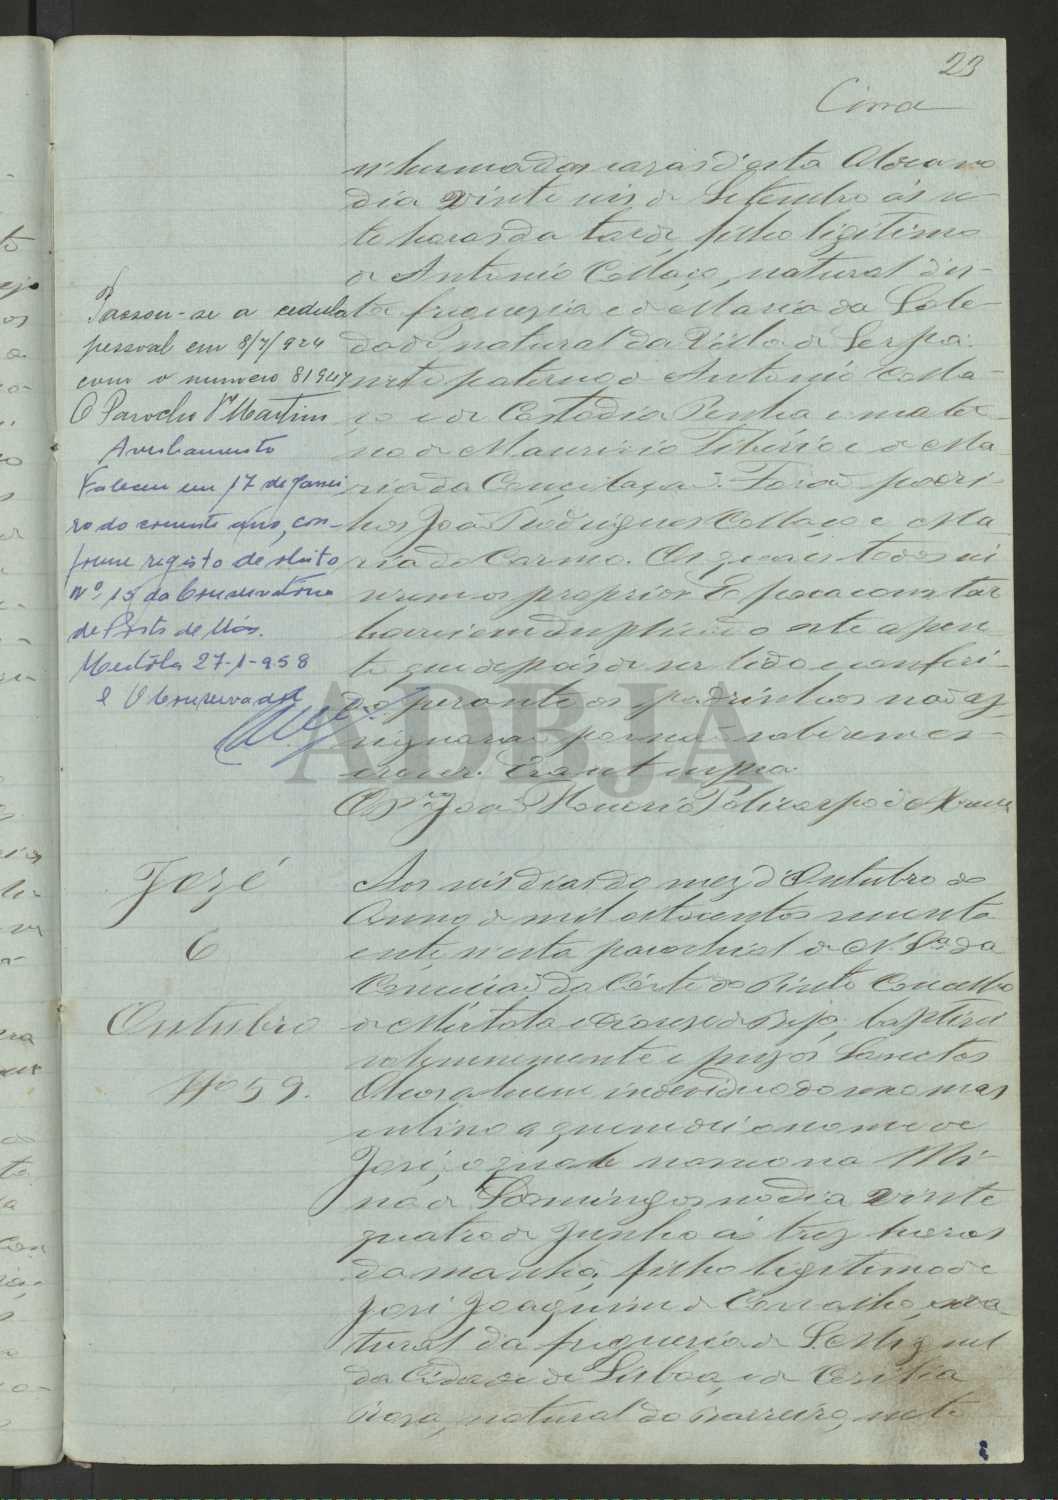 23
Cirra
n'huma das casas d'esta Aldea no
dia vinte seis de Setembro ás se-
te horas da tarde filho legitimo
de Antonio Collaço, natural d'es-
ta freguezia e de Maria da Sole-
dade natural da Villa de Serpa:
neto paterno de Antonio Colla-
ço e de Custodia Penha e mater
no de Mauricio Tiberio e de Ma-
ria da Conceiçaõ. Foraõ padri-
nhos Joaõ Rodrigues Collaço e Ma
ria do Carmo. Os quaes todos sei
serem os proprios. E para constar
lavrei em duplicado este assen-
to que depois de ser lido e conferi-
do perante os padrinhos naõ as-
signaraõ por naõ saberem es-
crever. Era ut supra.
O Pr. Joaõ Policarpo de
Passou-se a cedula
pessoal em 8/7/924
com o numero 81947
O Parocho Martins
Averbamento
Faleceu em 17 de Janei
ro do corrente ano, con-
forme registo de obito
Nº 15 da Conservatória
de Porto de Mós.
Mertóla 27-1-958
O Conservador
José
6
Outubro
Nº 59.
Aos seis dias do mez d'Outubro do
Anno de mil oitocentos noventa
e sete n'esta parochial de N. Sª da
Conceiçaõ da Côrte do Pinto Concelho
de Mertola e Diocese de Beja, baptisei
solemnemente e puz os Sanctos
Oleos a hum individuo do sexo mas
culino a quem dei o nome de
José, o qual nasceo na Mi-
na de S. Domingos no dia vinte
quatro de Junho ás trez horas
da manhã, filho legitimo de
José Joaquim de Carvalho, na-
tural da freguezia de S. Miguel
da Cidade de Lisboa, e de Cecilia
Roza, natural do Barreiro, neto
ADBJA